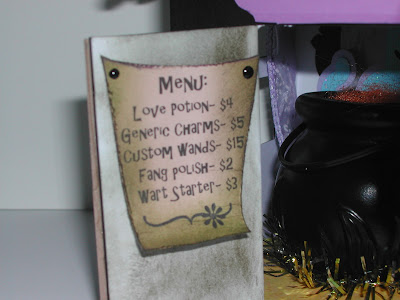 Menu:
Love Potion- $4
Generic Charms- $5
Custom Wands- $15
Fang Polish- $2
Wart Starter- $3